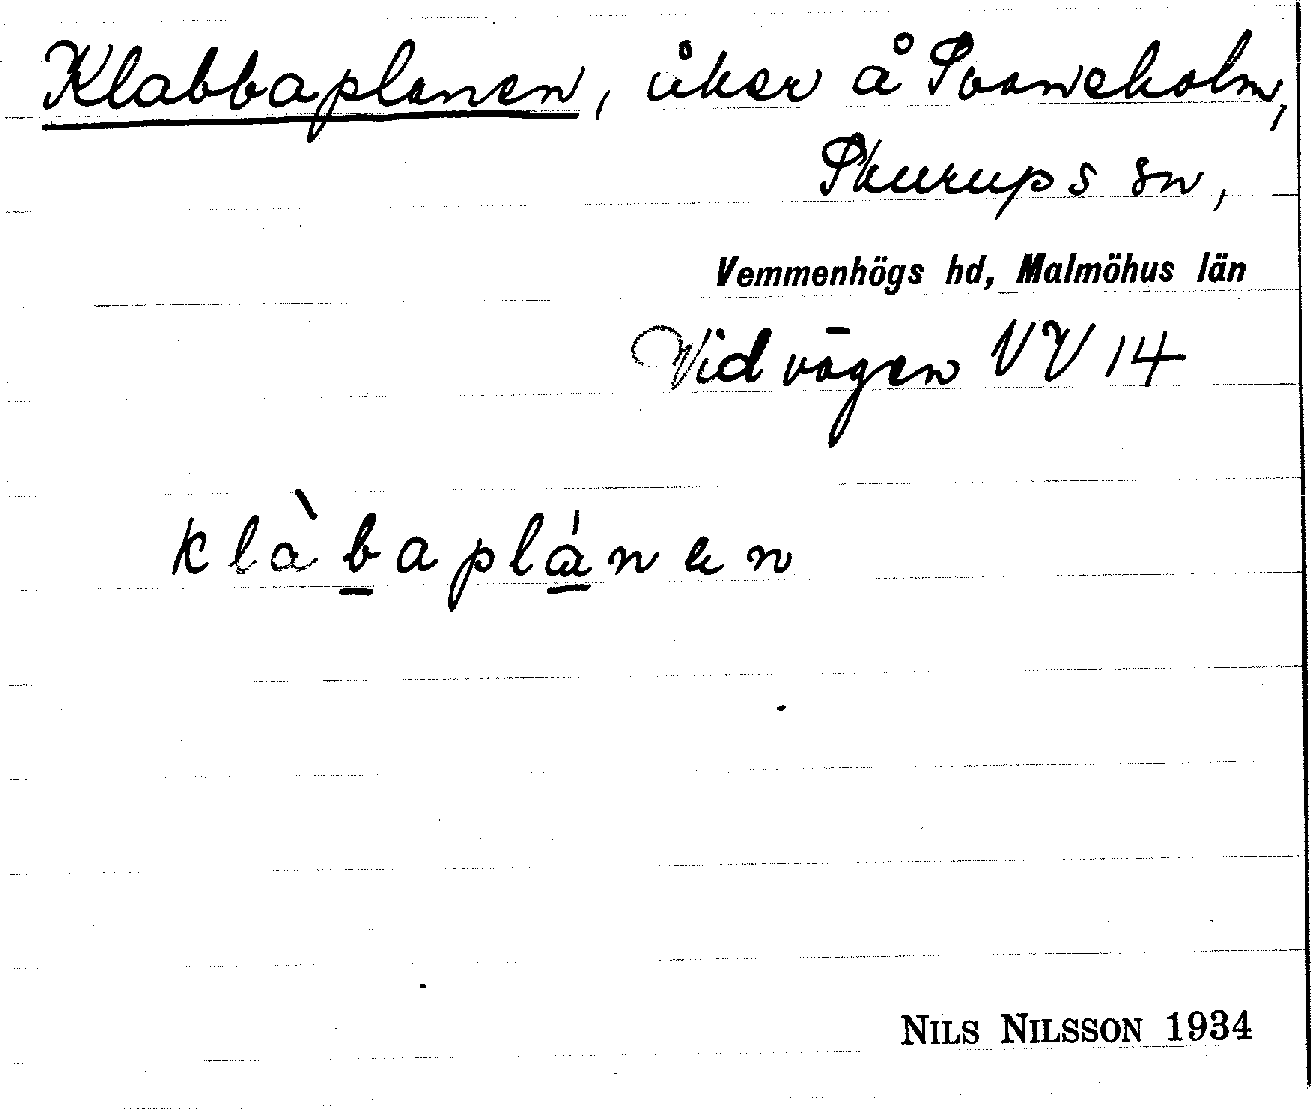 Klabbaplanen, åker å Svaneholm,
Skurups sn,
Vemmenhögs hd, Malmöhus län
Vid vägen VV 14
klàbaplánen
NILS NILSSON 1934